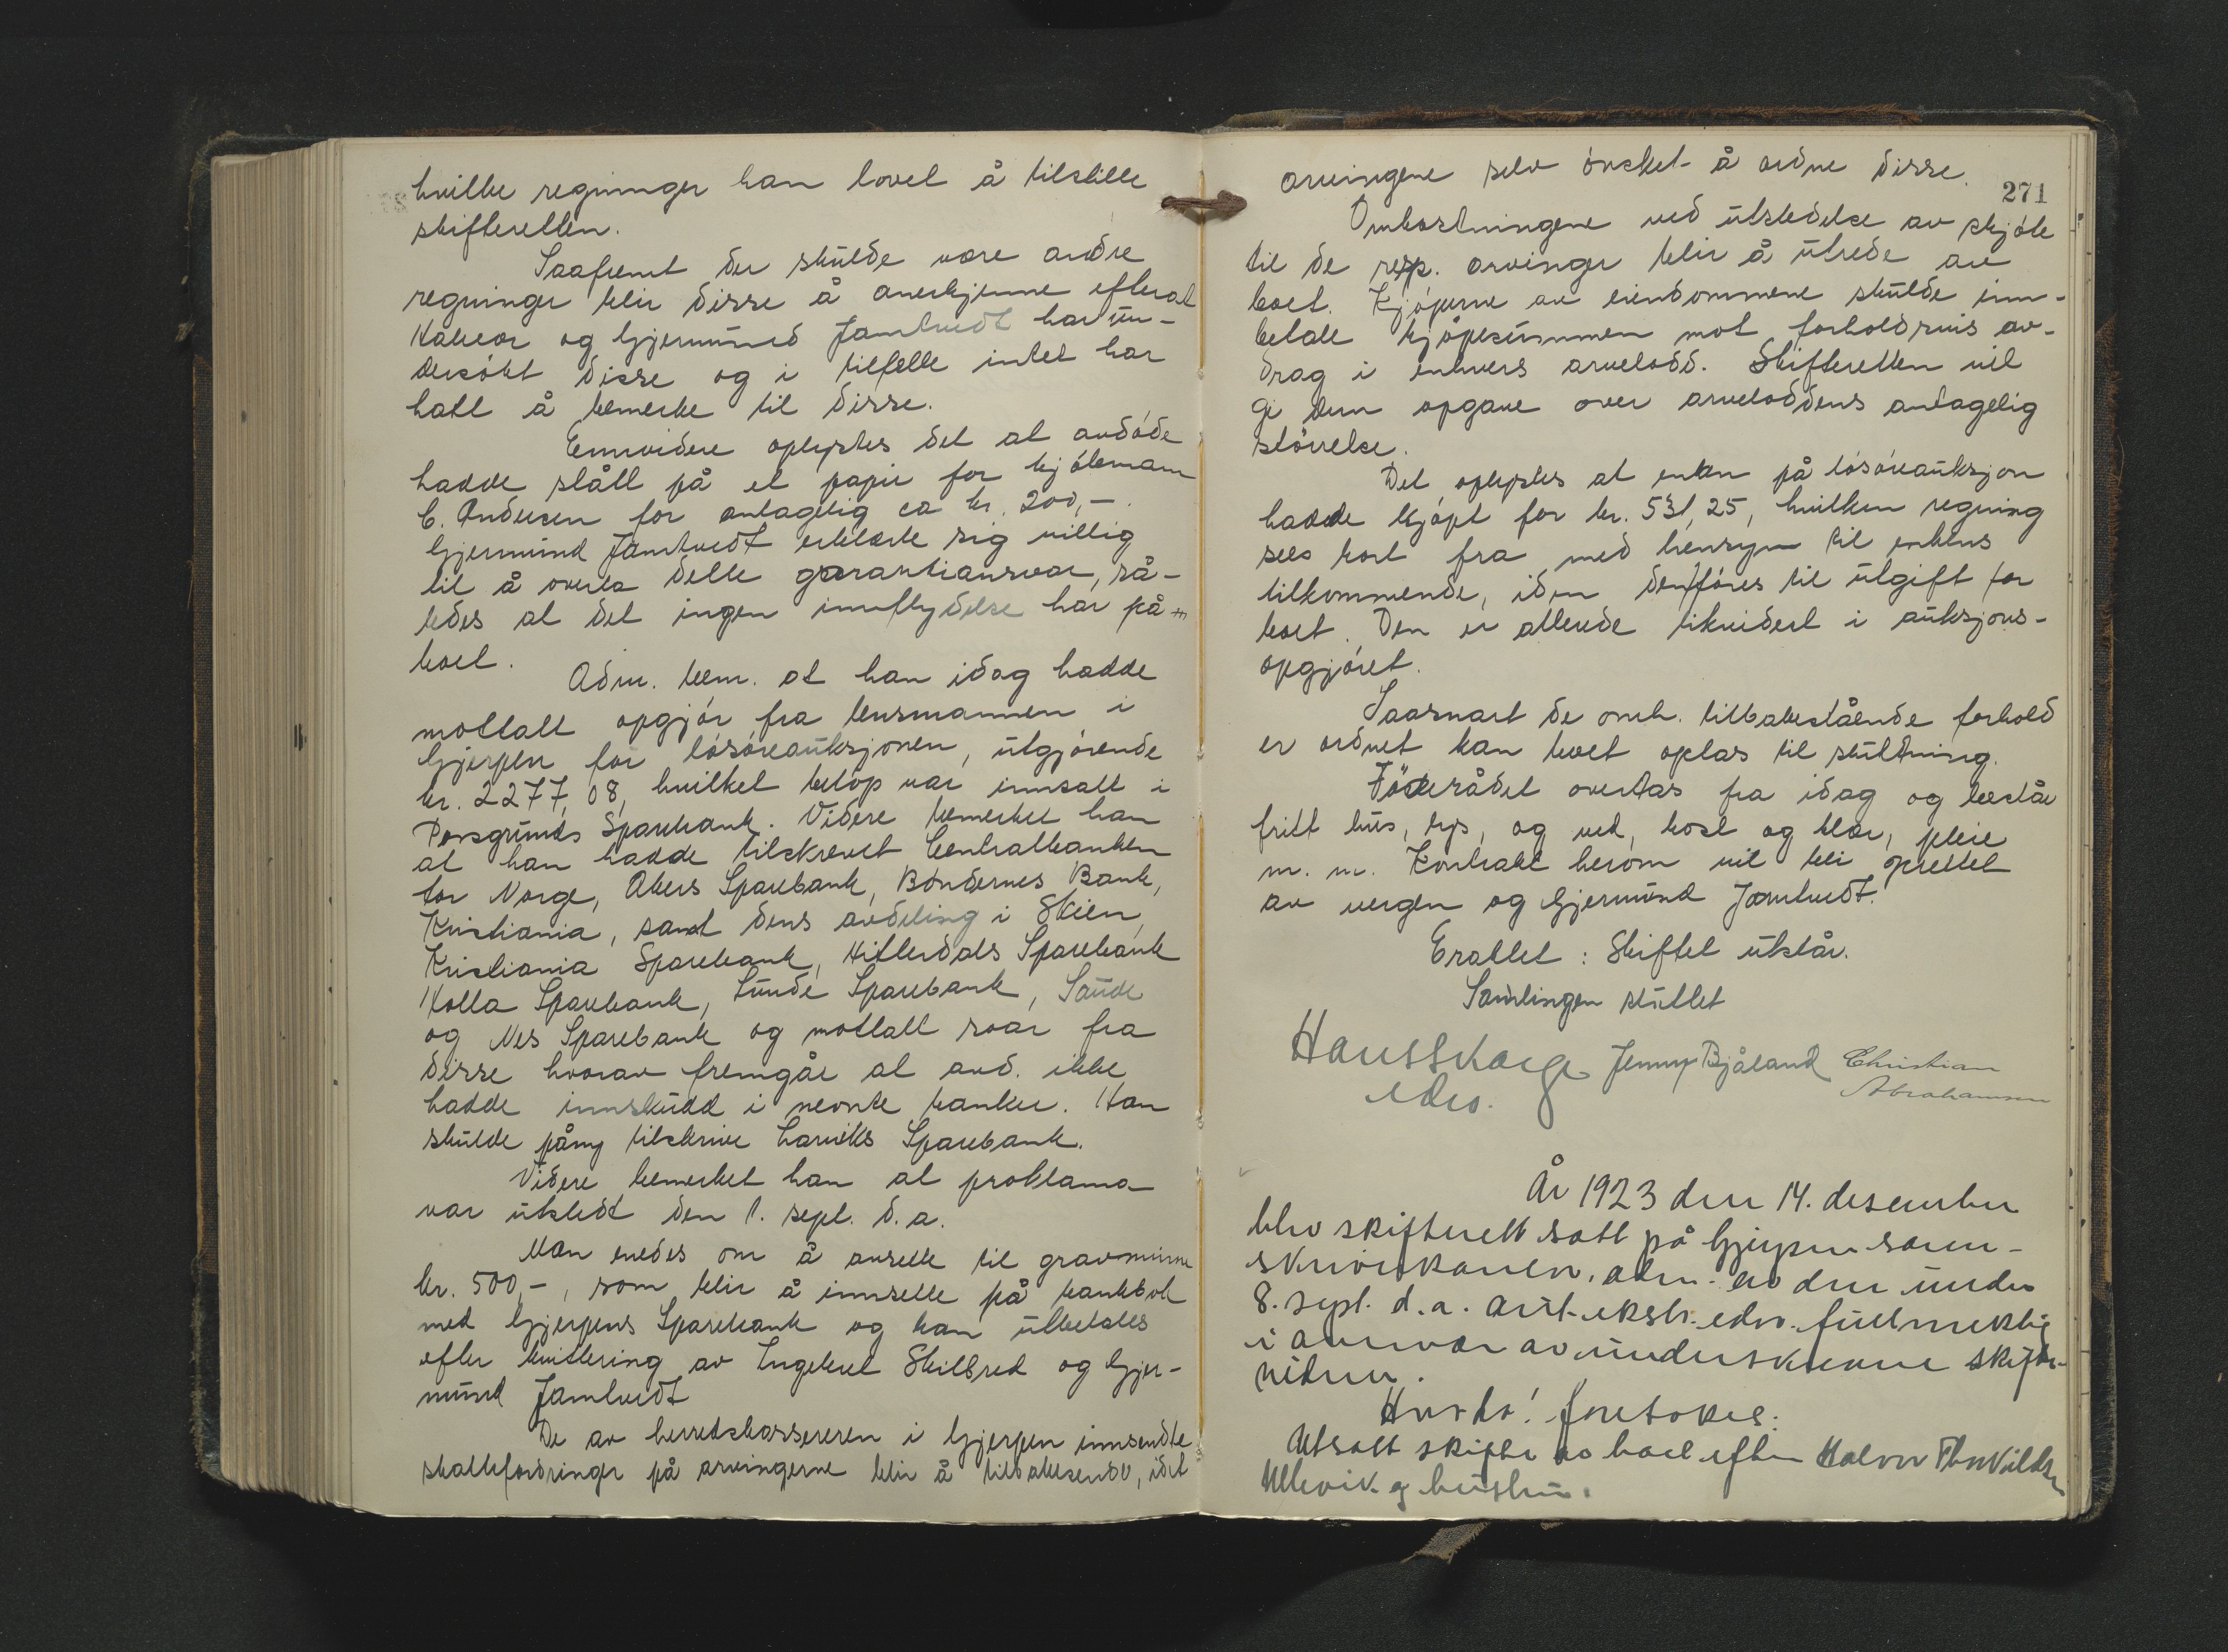 hvilke regninger han lovet å tilstille
skifteretten.
Saafremt der skulde være andre
regninger blir disse å anerkjenne efterat
Halvor og Gjermund Jamtvedt har un-
dersøkt disse og i tilfelle intet har
hatt å bemerke til disse.
Ennvidere oplystes det at avdøde
hadde stått på et papir for kjøbmann
C. Andersen for antagelig ca kr. 200,-.
Gjermund Jamtvedt erklærte sig villig
til å overta dette garantiansvar, så-
ledes at det ingen innflydelse har på
boet.
Adm. bem. at han idag hadde
mottatt opgjør fra lensmannen i
Gjerpen for løsøreauksjonen, utgjørende
kr. 2277,08, hvilket beløp var innsatt i
Porsgrunds Sparebank. Videre bemerket han
at han hadde tilskrevet Centralbanken
for Norge, Akers Sparebank, Bøndernes Bank,
Kristiania, samt dens avdeling i Skien,
Kristiania Sparebank, Hitterdals Sparebank
Holla Sparebank, Lunde Sparebank, Saude
og Nes Sparebank og mottatt svar fra
disse hvorav fremgår at avd. ikke
hadde innskudd i nevnte banker. Han
skulde påny tilskrive Larviks Sparebank.
Videre bemerket han at proklama
var utstedt den 1. sept. d.a.
Man enedes om å avsette til gravminne
kr. 500,-, som blir å innsette på bankbok
med Gjerpens Sparebank og kan utbetales
efter kvittering av Ingebret Skilbred og Gjer-
mund Jamtvedt
De av herredskassereren i Gjerpen innsendte
skattefordringer på arvingerne blir å tilbakesende, idet
271
arvingene selv ønsket å ordne disse.
Omkostningene ved utstedelse av skjøte
til de resp. arvinger blir å utrede av
boet. Kjøperne av eiendommene skulde inn-
betale kjøpesummen mot forholdsvis av-
drag i enhvers arvelodd. Skifteretten vil
gi dem opgave over arveloddens antagelig
størrelse.
Det oplystes at enken på løsøreauksjon
hadde kjøpt for kr. 531,25, hvilken regning
sees bort fra med hensyn til enkens
tilkommende, idet den føres til utgift for
boet. Den er allerede likvidert i auksjons-
opgjøret.
Saasnart de omh. tilbakestående forhold
er ordnet kan boet optas til slutning.
Föderådet overtas fra idag og består
fritt hus, lys, og ved, kost og klær, pleie
m. m. Kontrakt herom vil bli oprettet
av vergen og Gjermund Jamtvedt.
Erattet: Skiftet utstår.
Samlingen sluttet
Hans Skarge Jenny Bjåland Christian
edsv. Abrahamsen
År 1923 den 14. desember
blev skifterett satt på Gjerpen soren-
skriverkontor, adm. av den under
8. sept. d.a. aut. ekstr. edsv. fullmektig
i nærvær av underskrevne skifte-
vidner.
Hvorda! foretokes:
Utsatt skifte av boet efter Halvor Thorvildsen
Ullevik og hustru.